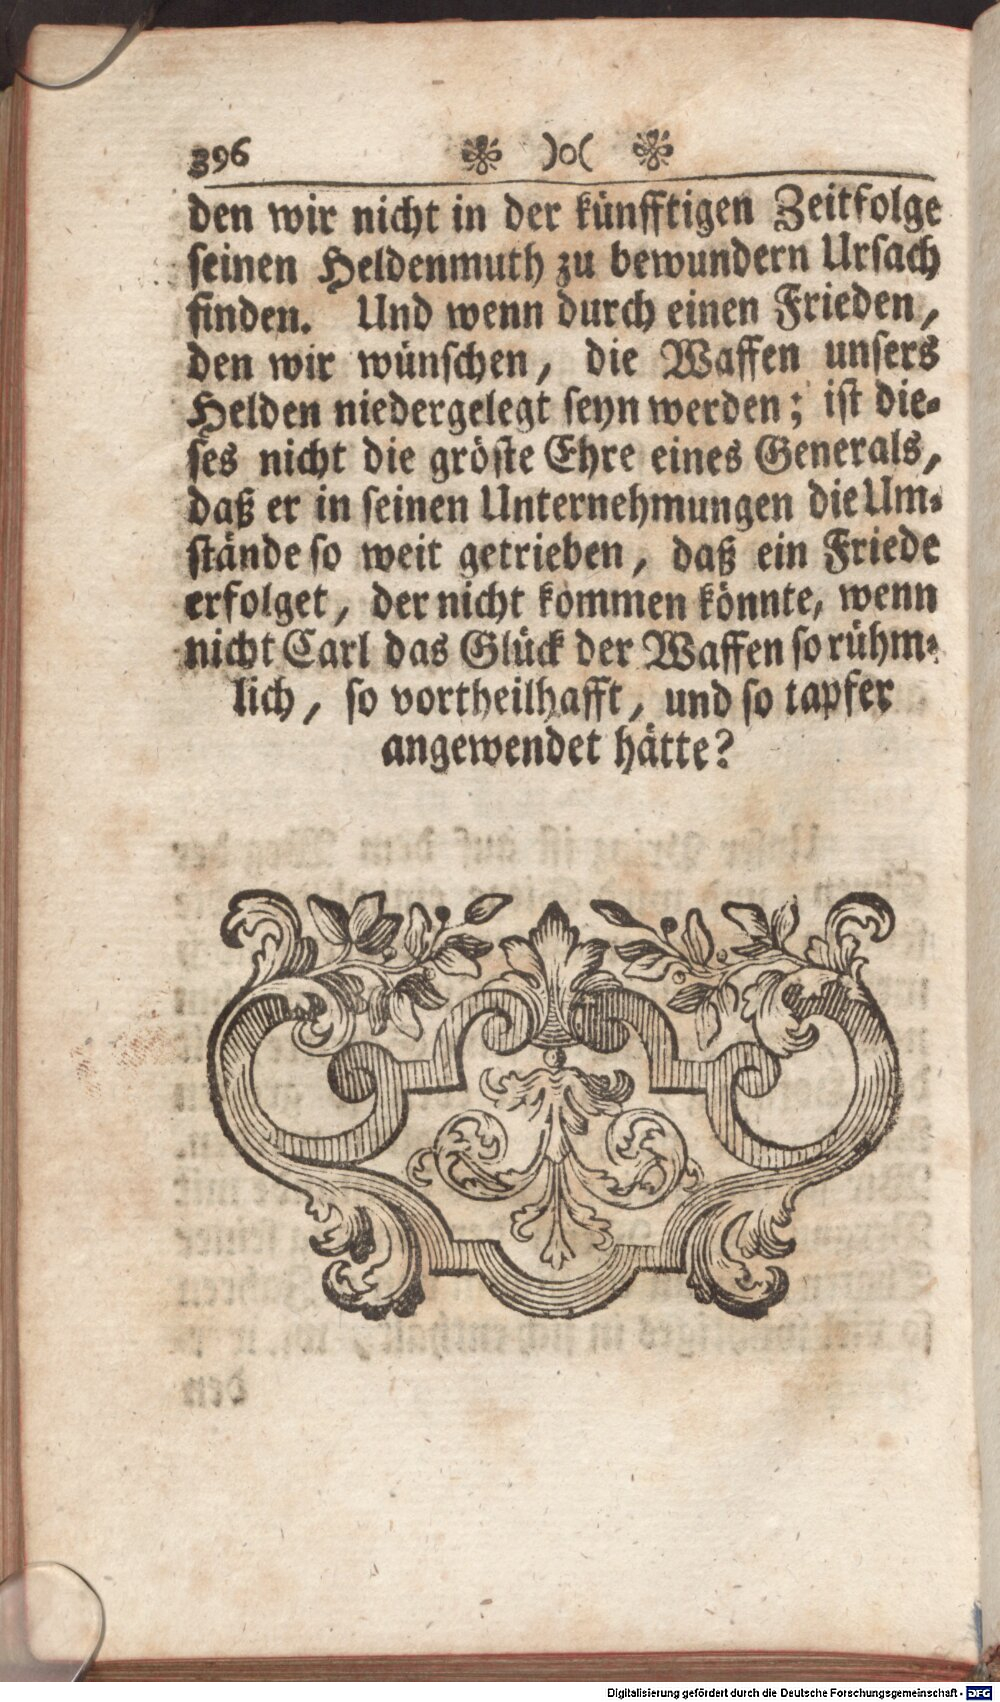 396 )o(
den wir nicht in der künfftigen Zeitfolge
seinen Heldenmuth zu bewundern Ursach
finden. Und wenn durch einen Frieden,
den wir wünschen, die Waffen unsers
Helden niedergelegt seyn werden; ist die-
ses nicht die gröste Ehre eines Generals,
daß er in seinen Unternehmungen die Um-
stände so weit getrieben, daß ein Friede
erfolget, der nicht kommen könnte, wenn
nicht Carl das Glück der Waffen so rühm-
lich, so vortheilhafft, und so tapfer
angewendet hätte?
Digitalisierung gefördert durch die Deutsche Forschungsgemeinschaft - DFG